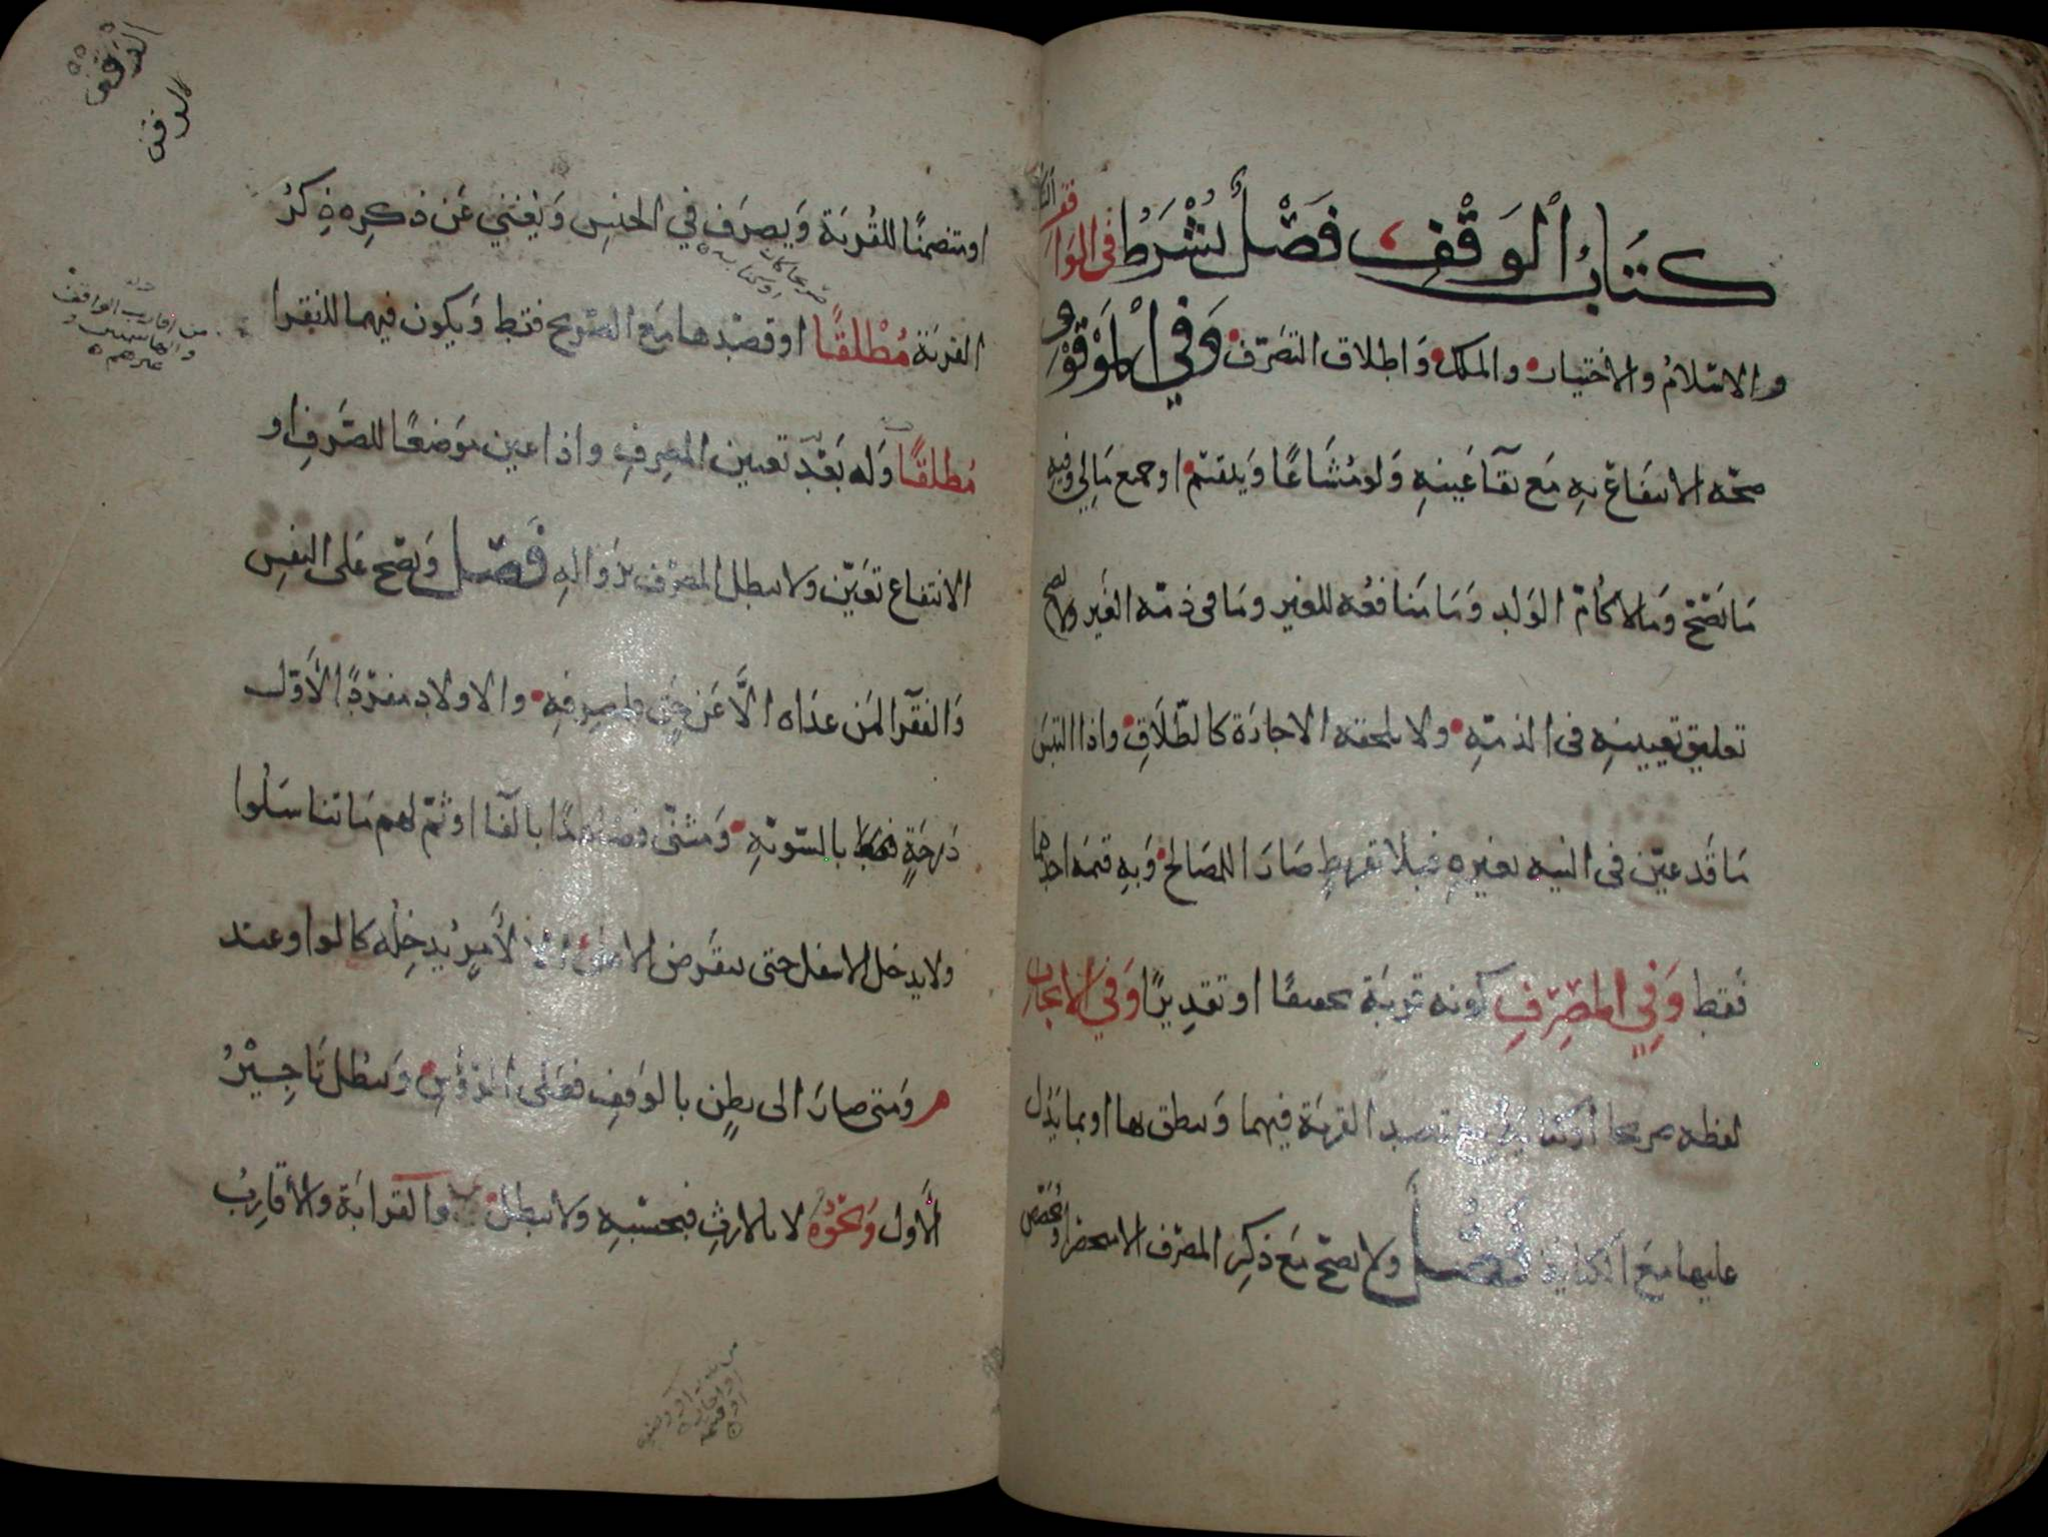 كتاب الوقف فصل يشرط في الواقف التكليف
والاسلام والاختيار والملك واطلاق التصرف وفي الموقوف
صحة الانتفاع به مع بقا عينه ولو مشاعا وينقسم او جميع مالي وفيه
ما يصح وما لا كام الولد وما منافعه للغير وما في ذمة الغير ولا يصح
تعليق تعيينه في الذمة ولا تلحقه الاجازة كالطلاق واذا التبس
ما قد عين في النيه بغيره فبلا تفريط صارا للمصالح وبه قيمه احدهما
فقط وفي المصرف كونه قربة تحقيقا او تقديرا وفي الايجاب
لفظه صريحا او كناية مع قصد القربة فيهما وينطق بها او بما يدل
عليها مع الكناية فصل ولا يصح مع ذكر المصرف الا منحصرا ويحصص
او متضمنا للقربة ويصرف في الجنس ويغني عن ذكره ذكر
القربة مطلقا او قصدها مع الصريح فقط ويكون فيهما للفقرا
مطلقا وله بعد تعيين المصرف واذا عين موضعا للصرف او
الانتفاع تعين ولا يبطل المصرف بزواله فصل ويصح على النفس
والفقرا لمن عداه الا عن حق فلمصرفه والاولاد مفردا لاول
درجة فقط بالسوية ومثنى فصاعدا بالفا او ثم لهم ما تناسلوا
ولا يدخل الاسفل حتى ينقرض الاعلى الا لامر يدخله كالواو عند
م ومتى صار الى بطن بالوقف فعلى الرؤس ويبطل تاجير
الاول ونحوه لا بالارث فبحسبه ولا يبطل والقرابة والاقارب
الوقف
الوقف
صريحا كان
او كناية
من اقارب الواقف
والهاشميين
غيرهم